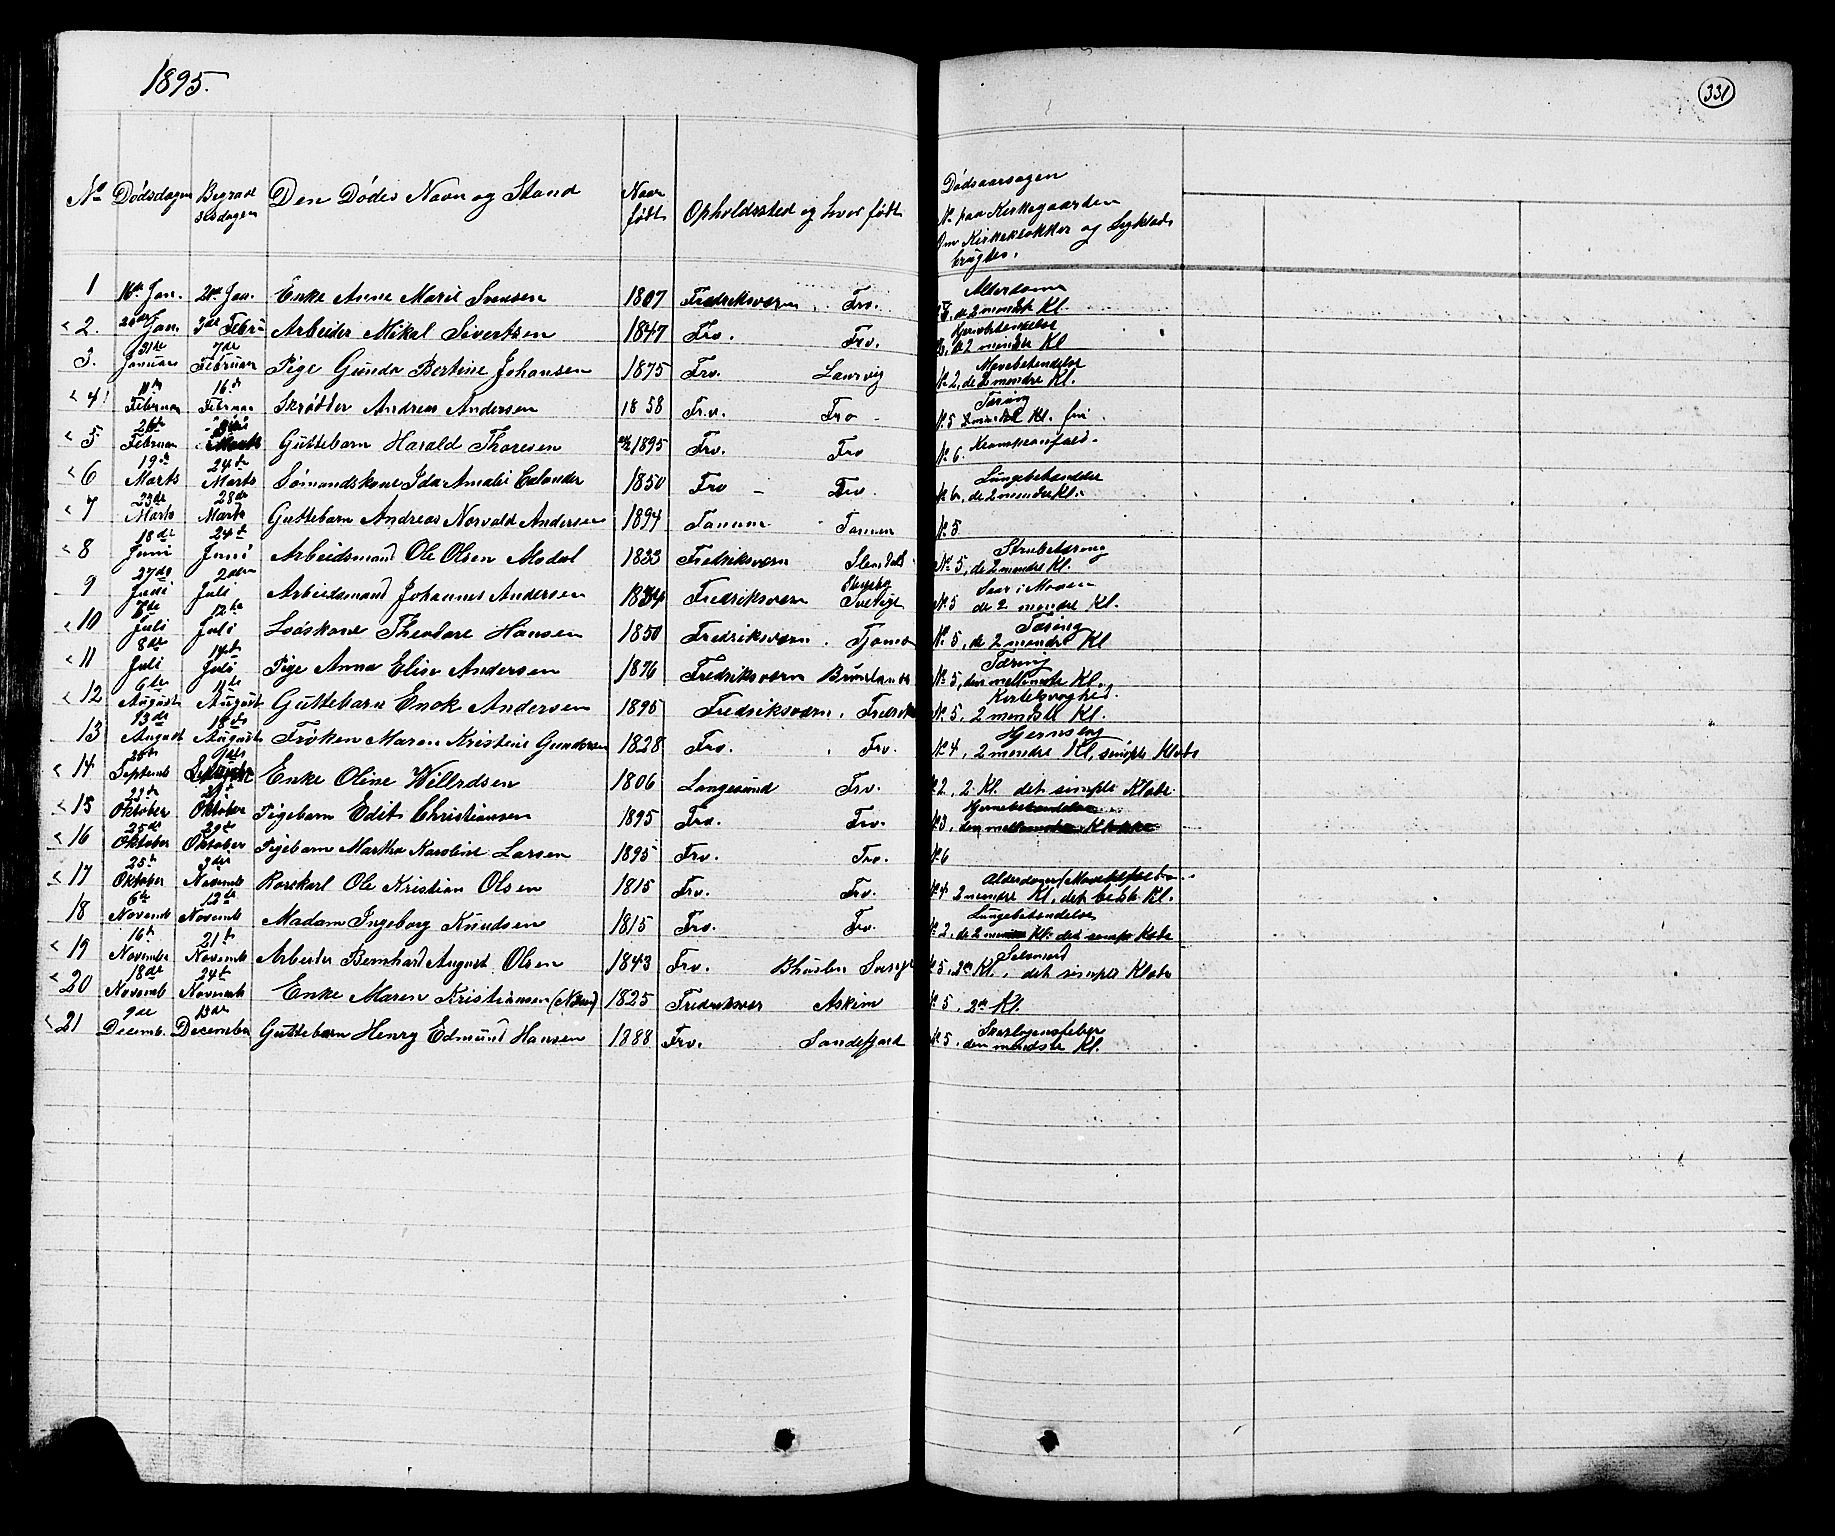 1895.
331
No Dødsdagen Begravelsesdagen Den Dødes Navn og Stand Naar født Opholdssted og hvor født Dødsaarsagen
No paa Kirkegaarden
Om Kirkeklokker og Ligklæde
brugtes.
1 16de Jan. 21de Jan. Enke Anne Marie Svensen 1807 Fredriksværn Frv. Alderdom
de 2 mindste Kl.
2. Jan. 3die Febru Arbeider Mikal Sivertsen 1847 Frv. Frv.
2 mindste Kl
3. 31te Januar 7de Februar Pige Gunda Bertine Johansen 1875 Frv. Laurvig Mavebetendelse
No 2, de 2 mindre Kl.
4 11te Februar 16de Februar Skrædder Andreas Andersen 1858 Frv. Frv. Tæring
No 5 Kl. fri
5 26de Februar Marts Guttebarn Harald Thoresen 1895 Frv. Frv Krampeanfald
No 6.
6 19de Marts 24de Marts Sømandskone Ida Amalie Calander 1850 Frv Frv. Lungebetendelse
No 6, de 2 mindre Kl.
7 23de Marts 28de Marts Guttebarn Andreas Norvald Andersen 1894 Tanum Tanum
No 5
8 18de Juni 24de Juni Arbeidsmand Ole Olsen Modal 1833 Fredriksværn Slemdal Strubetæring
No 5, de 2 mindre Kl.
9 27de Juni 2den Juli Arbeidsmand Johannes Andersen 1834 Fredriksværn Sverige Saar i Maven
No 5 de 2 mindre Kl.
10 7de Juli 12te Juli Loskone Theodore Hansen 1850 Fredriksværn. Tjømø Tæring
No 5, de 2 mindre Kl
11 8de Juli 14de Juli Pige Anna Elise Andersen 1876 Fredriksværn Brunlanes Tæring
No 5, den mellemste Kl.
12 6te August 11te August Guttebarn Enok Andersen 1895 Fredriksværn. Fredriks Kirtelsvaghed.
No 5, 2 mindste Kl.
13 13de August 18de August Frøken Maren Kristine Gundersen 1828 Frv. Frv. Hjerneslag
No 4, 2 mindre Kl, simple Klæde
14 Septemb Enke Oline Willadsen 1806 Langesund Frv.
No 2, 2 Kl. det simple Klæde.
15 Oktober Oktober Pigebarn Edit Christiansen 1895 Frv. Frv. Hjernebetendelse
No 3, den mellemste Klokke
16 25de Oktober 29de Oktober Pigebarn Martha Karoline Larsen 1895 Frv. Frv.
No 6
17 25de Oktober 3die Novemb Rorskarl Ole Kristian Olsen 1815 Frv. Frv. Alderdom
No 4 2 mindre Kl, det bedste Kl.
18 6te Novemb 12te Novemb Madam Ingeborg Knudsen 1815 Frv. Frv. Lungebetendelse
No 2, de 2 mindre Kl. det simple Klæde
19 16de Novemb 21de Novemb Arbeider Bernhard August Olsen 1843 Frv. Sverige Selvmord
No 5, 2de Kl., det simple Klæde
20 18de Novemb 24de Novemb Enke Maren Kristiansen 1825 Fredriksvær Askim
No 5, 2de Kl.
21 9de Decemb. 13de December Guttebarn Henry Edmund Hansen 1888 Frv. Sandefjord Skarlagensfeber
No 5, den mindste Kl.